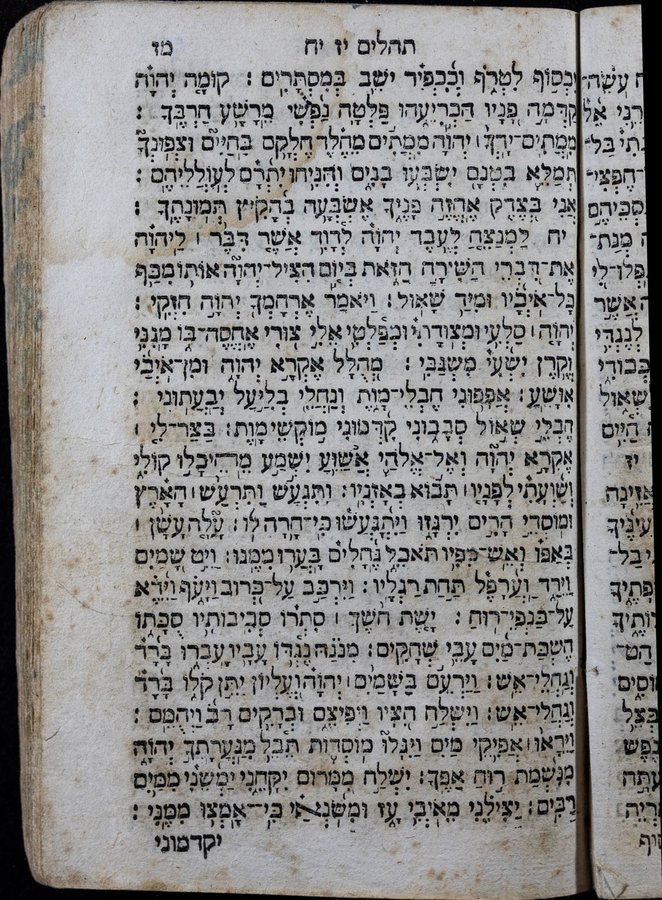 תהלים יז יח מז
יִכְסוֹף לִטְרֹף וְכִכְפִיר יֹשֵׁב בְּמִסְתָּרִים׃ קוּמָה יְהוָה
קַדְּמָה פָנָיו הַכְרִיעֵהוּ פַּלְּטָה נַפְשִׁי מֵרָשָׁע חַרְבֶּךָ׃
מִמְתִים־יָדְךָ׀ יְהוָה מִמְתִים מֵחֶלֶד חֶלְקָם בַּחַיִּים וּצְפוּנְךָ
תְּמַלֵּא בִטְנָם יִשְׂבְּעוּ בָנִים וְהִנִּיחוּ יִתְרָם לְעוֹלְלֵיהֶם׃
אֲנִי בְּצֶדֶק אֶחֱזֶה פָנֶיךָ אֶשְׂבְּעָה בְהָקִיץ תְּמוּנָתֶךָ׃
יח לַמְנַצֵּחַ לְעֶבֶד יְהוָה לְדָוִד אֲשֶׁר דִּבֶּר׀ לַיהוָה
אֶת־דִּבְרֵי הַשִּׁירָה הַזֹּאת בְּיוֹם הִצִּיל־יְהוָה אוֹתוֹ מִכַּף
כָּל־אֹיְבָיו וּמִיַּד שָׁאוּל׃ וַיֹּאמַר אֶרְחָמְךָ יְהוָה חִזְקִי׃
יְהוָה׀ סַלְעִי וּמְצוּדָתִי וּמְפַלְטִי אֵלִי צוּרִי אֶחֱסֶה־בּוֹ מָגִנִּי
וְקֶרֶן יִשְׁעִי מִשְׂגַּבִּי׃ מְהֻלָּל אֶקְרָא יְהוָה וּמִן־אֹיְבַי
אִוָּשֵׁעַ׃ אֲפָפוּנִי חֶבְלֵי־מָוֶת וְנַחֲלֵי בְלִיַּעַל יְבַעֲתוּנִי׃
חֶבְלֵי שְׁאוֹל סְבָבוּנִי קִדְּמוּנִי מוֹקְשֵׁי מָוֶת׃ בַּצַּר־לִי׀
אֶקְרָא יְהוָה וְאֶל־אֱלֹהַי אֲשַׁוֵּעַ יִשְׁמַע מֵהֵיכָלוֹ קוֹלִי
וְשַׁוְעָתִי לְפָנָיו׀ תָּבוֹא בְאָזְנָיו׃ וַתִּגְעַשׁ וַתִּרְעַשׁ׀ הָאָרֶץ
וּמוֹסְדֵי הָרִים יִרְגָּזוּ וַיִּתְגָּעֲשׁוּ כִּי־חָרָה לוֹ׃ עָלָה עָשָׁן׀
בְּאַפּוֹ וְאֵשׁ־מִפִּיו תֹּאכֵל גֶּחָלִים בָּעֲרוּ מִמֶּנּוּ׃ וַיֵּט שָׁמַיִם
וַיֵּרַד וַעֲרָפֶל תַּחַת רַגְלָיו׃ וַיִּרְכַּב עַל־כְּרוּב וַיָּעֹף וַיֵּדֶא
עַל־כַּנְפֵי־רוּחַ׃ יָשֶׁת חֹשֶׁךְ׀ סִתְרוֹ סְבִיבוֹתָיו סֻכָּתוֹ
חֶשְׁכַת־מַיִם עָבֵי שְׁחָקִים׃ מִנֹּגַהּ נֶגְדּוֹ עָבָיו עָבְרוּ בָּרָד
וְגַחֲלֵי־אֵשׁ׃ וַיַּרְעֵם בַּשָּׁמַיִם׀ יְהוָה וְעֶלְיוֹן יִתֵּן קֹלוֹ בָּרָד
וְגַחֲלֵי־אֵשׁ׃ וַיִּשְׁלַח חִצָּיו וַיְפִיצֵם וּבְרָקִים רָב וַיְהֻמֵּם׃
וַיֵּרָאוּ׀ אֲפִיקֵי מַיִם וַיִּגָּלוּ מוֹסְדוֹת תֵּבֵל מִגַּעֲרָתְךָ יְהוָה
מִנִּשְׁמַת רוּחַ אַפֶּךָ׃ יִשְׁלַח מִמָּרוֹם יִקָּחֵנִי יַמְשֵׁנִי מִמַּיִם
רַבִּים׃ יַצִּילֵנִי מֵאֹיְבִי עָז וּמִשֹּׂנְאַי כִּי־אָמְצוּ מִמֶּנִּי׃
יקדמוני